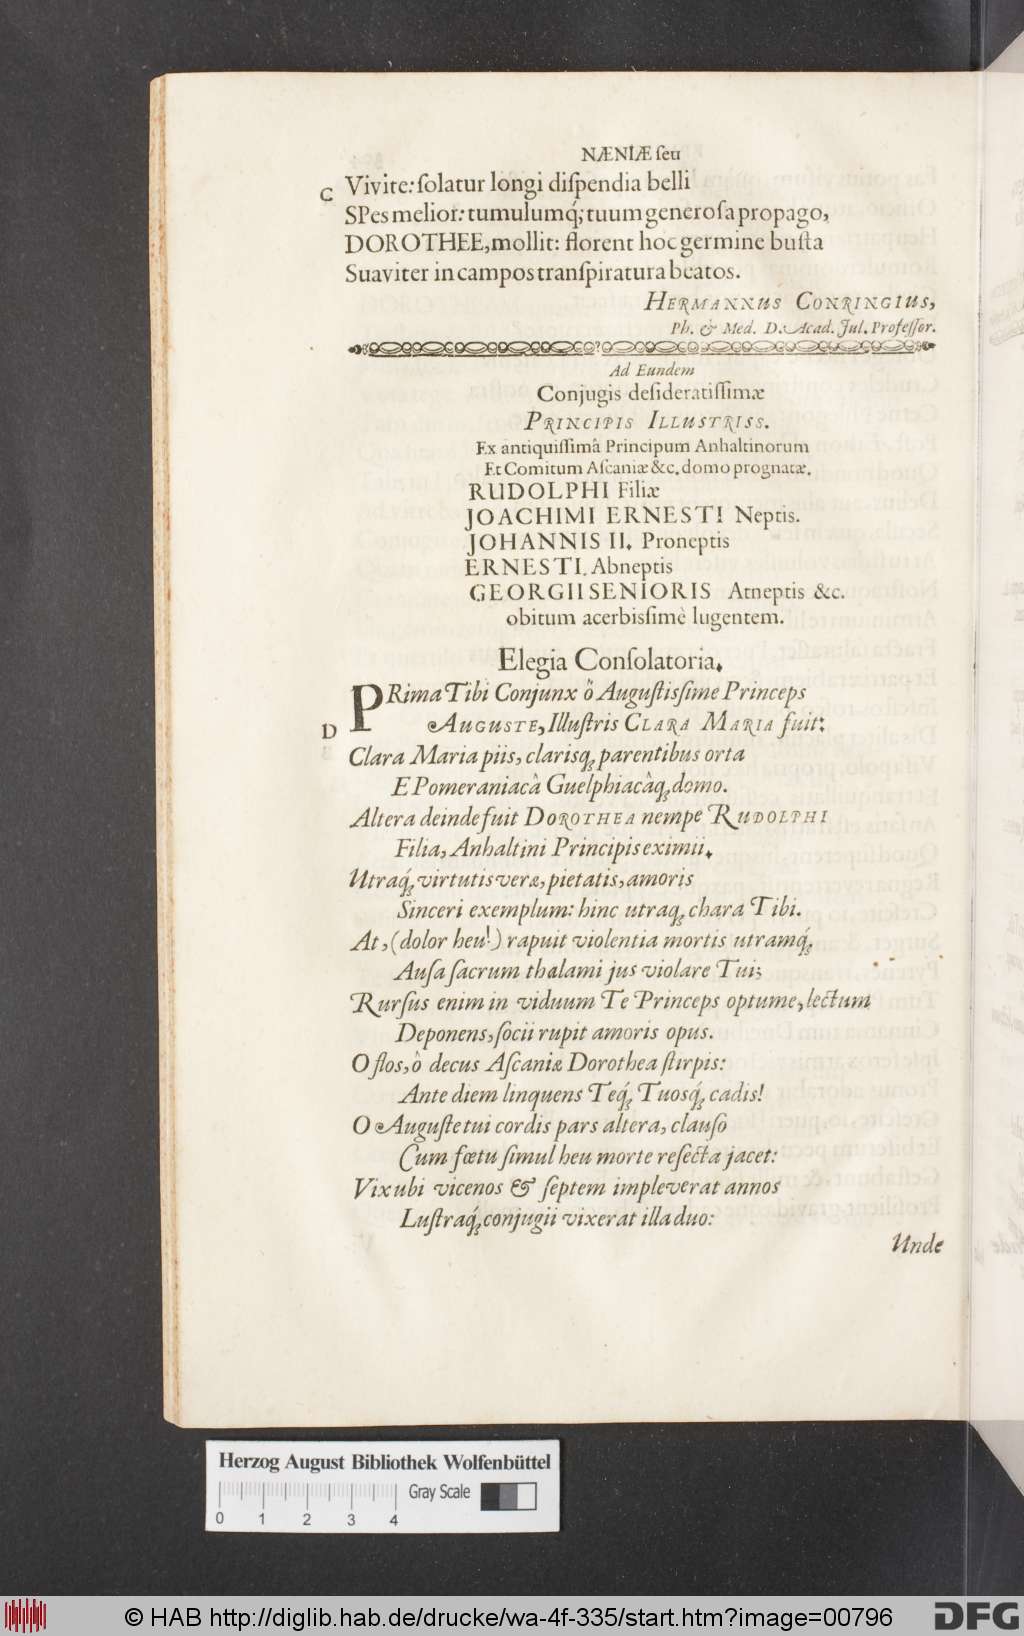 NÆNIÆ ſeu
C
Vivite: ſolatur longi diſpendia belli
SPes melior: tumulumq́; tuum generoſa propago,
DOROTHEE, mollit: florent hoc germine buſta
Suaviter in campos tranſpiratura beatos.
HERMANNUS CONRINGIUS,
Ph. & Med. D. Acad. Jul. Profeſſor.
Ad Eundem
Conjugis deſideratiſſimæ
PRINCIPIS ILLUSTRISS.
Ex antiquiſſimâ Principum Anhaltinorum
Et Comitum Aſcaniæ &c. domo prognatæ.
RUDOLPHI Filiæ
JOACHIMI ERNESTI Neptis.
JOHANNIS II. Proneptis
ERNESTI. Abneptis
GEORGII SENIORIS Atneptis &c.
obitum acerbiſſimè lugentem.
Elegia Conſolatoria.
PRima Tibi Conjunx ô Auguſtiſsime Princeps
D
AUGUSTE, Illuſtris CLARA MARIA fuit:
Clara Maria piis, clarisq; parentibus orta
E Pomeraniacâ Guelphiacâq; domo.
Altera deinde fuit DOROTHEA nempe RUDOLPHI
Filia, Anhaltini Principis eximii.
Utraq́; virtutis veræ, pietatis, amoris
Sinceri exemplum: hinc utraq; chara Tibi.
At, (dolor heu!) rapuit violentia mortis utramq́;
Auſa ſacrum thalami jus violare Tui;
Rurſus enim in viduum Te Princeps optume, lectum
Deponens, ſocii rupit amoris opus.
O flos, ô decus Aſcaniæ Dorothea ſtirpis:
Ante diem linquens Teq́; Tuosq́; cadis!
O Auguſte tui cordis pars altera, clauſo
Cum fœtu ſimul heu morte reſecta jacet:
Vix ubi vicenos & ſeptem impleverat annos
Luſtraq́; conjugii vixerat illa duo:
Unde
Herzog August Bibliothek Wolfenbüttel
Gray Scale
0 1 2 3 4
© HAB http://diglib.hab.de/drucke/wa-4f-335/start.htm?image=00796
DFG